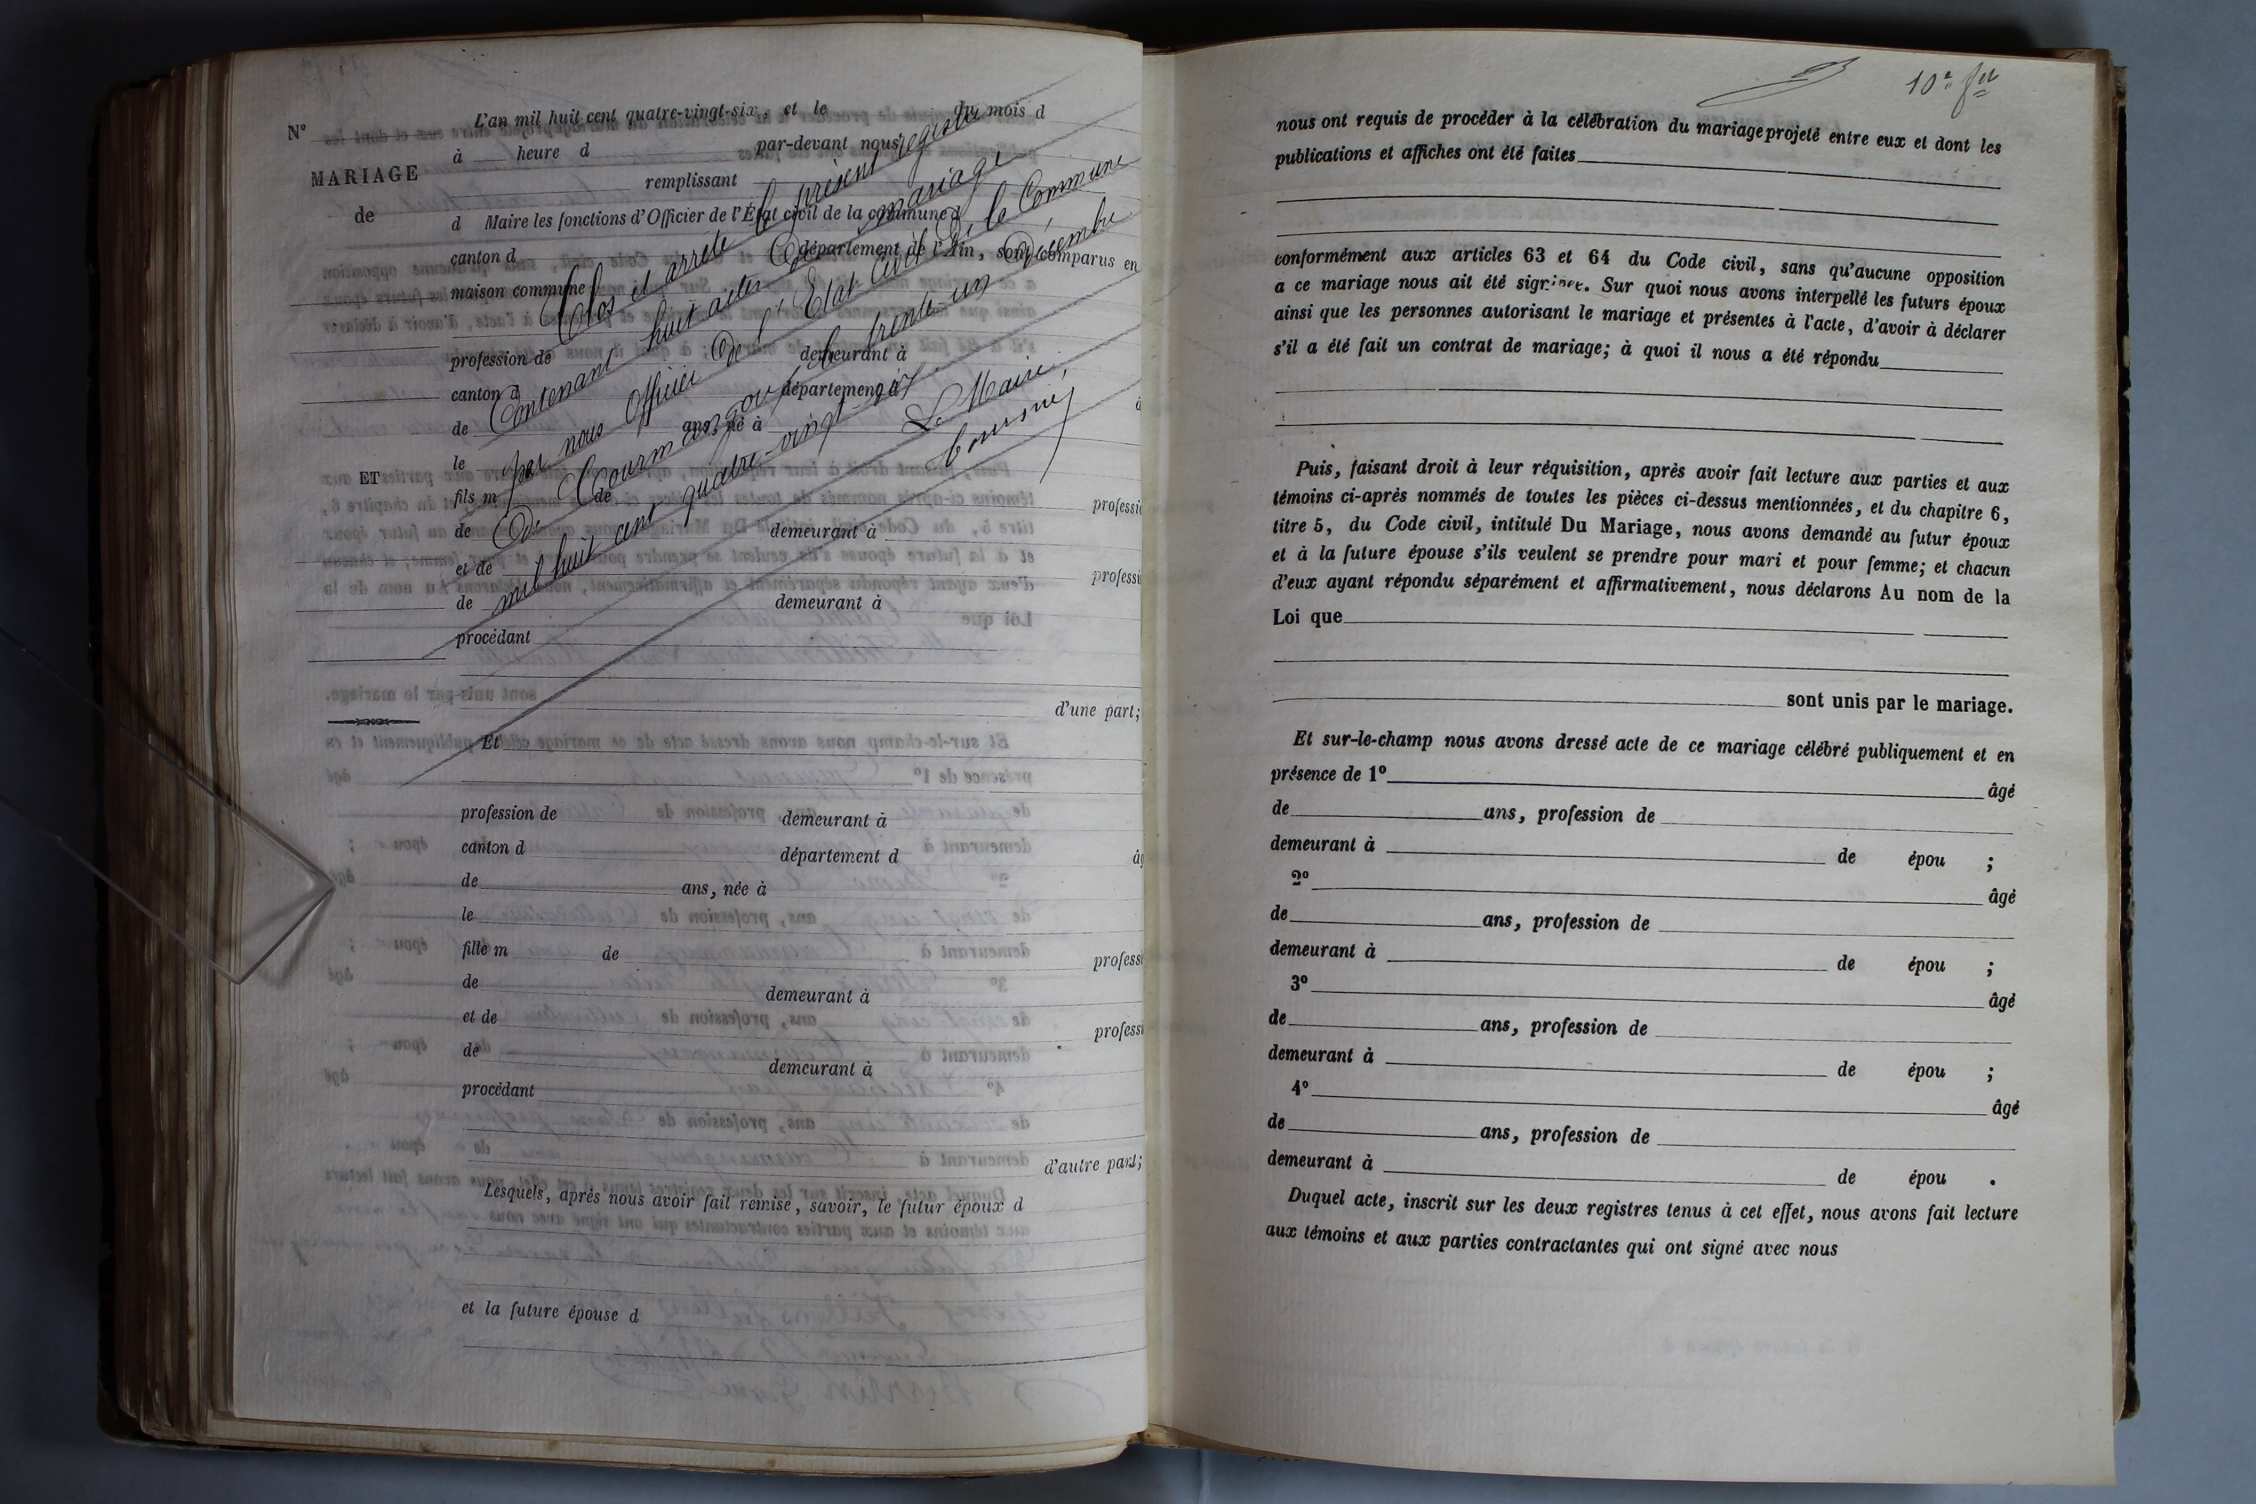 N° L'an mil huit cent quatre-vingt-six, et le du mois d
à heure d par-devant nous
MARIAGE
remplissant
de
d Maire les fonctions d'Officier de l'État civil de la commune d
canton d département de l'Ain, sont comparus en
maison commune
profession de demeurant à
canton d département d
de ans, né à à
le
ET
fils m de professi
de demeurant à
et de professi
de demeurant à
procédant
d'une part;
Et
profession de demeurant à
canton d département d âg
de ans, née à
le
fille m de profess
de demeurant à
et de profess
de demeurant à
procédant
d'autre part;
Lesquels, après nous avoir fait remise, savoir, le futur époux d
et la future épouse d
Clos et arrêté le présent registre
Contenant huit actes de mariage
par nous Officier de l'État civil de la Commune
de Courmangoux le trente-un Décembre
mil huit cent quatre-vingt-six
Le Maire,
10e fet
nous ont requis de procéder à la célébration du mariage projeté entre eux et dont les
publications et affiches ont été faites
conformément aux articles 63 et 64 du Code civil, sans qu'aucune opposition
a ce mariage nous ait été signifiée. Sur quoi nous avons interpellé les futurs époux
ainsi que les personnes autorisant le mariage et présentes à l'acte, d'avoir à déclarer
s'il a été fait un contrat de mariage; à quoi il nous a été répondu
Puis, faisant droit à leur réquisition, après avoir fait lecture aux parties et aux
témoins ci-après nommés de toutes les pièces ci-dessus mentionnées, et du chapitre 6,
titre 5, du Code civil, intitulé Du Mariage, nous avons demandé au futur époux
et à la future épouse s'ils veulent se prendre pour mari et pour femme; et chacun
d'eux ayant répondu séparément et affirmativement, nous déclarons Au nom de la
Loi que
sont unis par le mariage.
Et sur-le-champ nous avons dressé acte de ce mariage célébré publiquement et en
présence de 1° âgé
de ans, profession de
demeurant à de épou ;
2° âgé
de ans, profession de
demeurant à de épou ;
3° âgé
de ans, profession de
demeurant à de épou ;
4° âgé
de ans, profession de
demeurant à de épou .
Duquel acte, inscrit sur les deux registres tenus à cet effet, nous avons fait lecture
aux témoins et aux parties contractantes qui ont signé avec nous